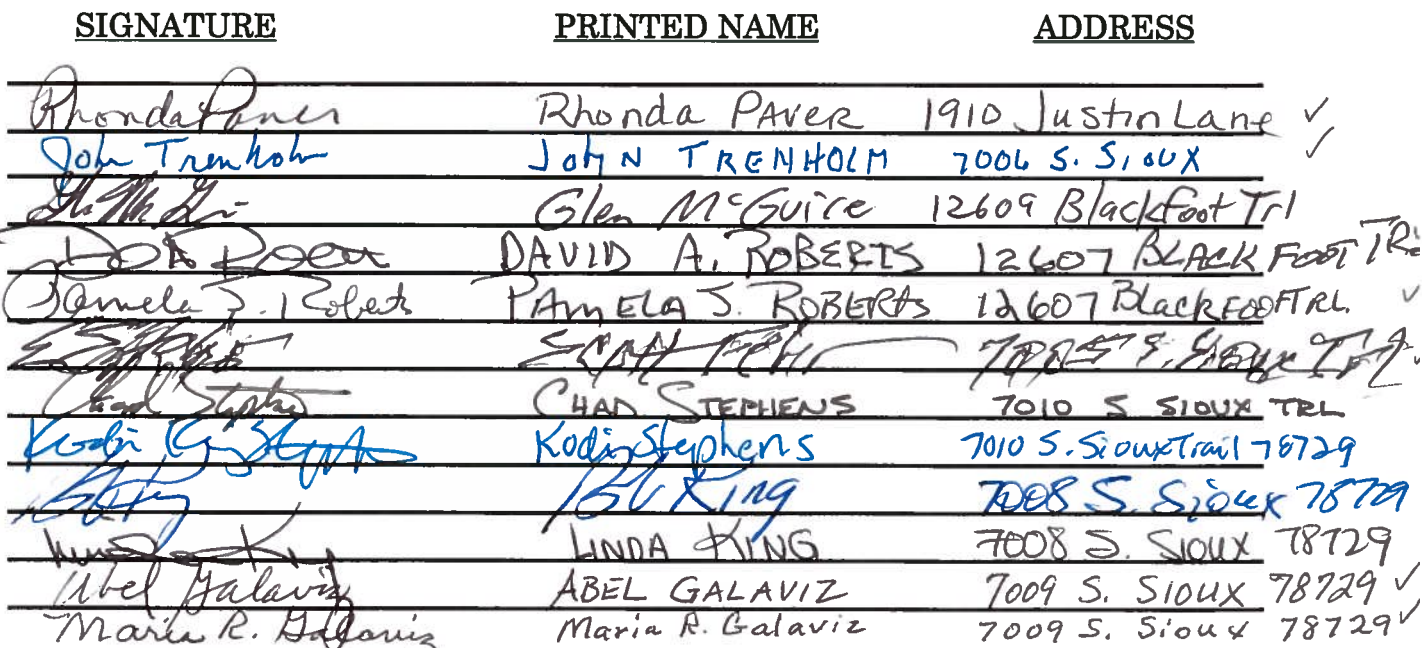 SIGNATURE PRINTED NAME ADDRESS
Rhonda Paver Rhonda PAVER 1910 Justin Lane ✓
John Trenholm JohN TRENHOLM 7006 S. SIOUX ✓
Glen McGuire 12609 Blackfoot Trl
DAVID A. ROBERTS 12607 BLACK FOOT
Pamela J. Roberts PAMELA J. ROBERTS 12607 Blackfoot TRL ✓
S. Sioux
Chad Stephens CHAD STEPHENS 7010 S SIOUX TRL
Kodi Stephens 7010 S. Sioux Trail 78729
King 7008 S. Sioux 78729
LINDA KING 7008 S. SIOUX 78729
Abel Galaviz ABEL GALAVIZ 7009 S. SIOUX 78729 ✓
Maria R. Galaviz Maria R. Galaviz 7009 S. Sioux 78729 ✓